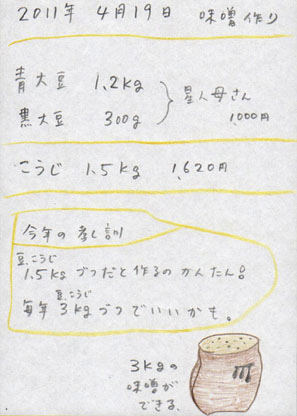 2011年 4月19日 味噌作り
青大豆 1.2kg
黒大豆 300g
星人母さん
1,000円
こうじ 1.5kg 1,620円
今年の教訓
豆、こうじ
1.5kgづつだと作るのかんたん!
豆、こうじ
毎年 3kgづつでいいかも。
3kgの
味噌が
できる。